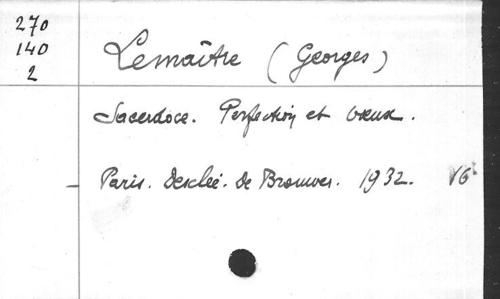 270
140
2
Lemaître (Georges)
Sacerdoce. Perfection et vœux.
— Paris. Desclée. De Brouwer. 1932. V6